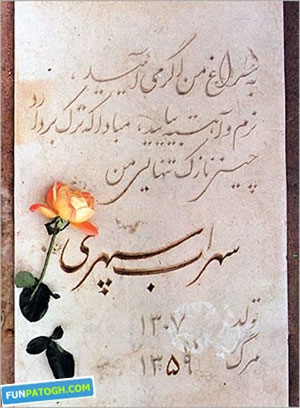 به سراغ من اگر می آیید،
نرم و آهسته بیایید، مبادا که ترک بردارد
چینی نازک تنهایی من
سهراب سپهری
تولد ۱۳۰۷
مرگ ۱۳۵۹
FUNPATOGH.COM